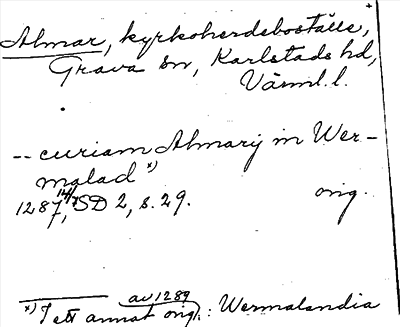 Almar, kyrkoherdeboställe,
Grava sn, Karlstads hd,
Värml. l.
-- curiam Almarij in Wer-
malad x)
1287 14/7, SD 2, s. 29. orig.
x) I ett annat orig. av 1289: Wermalandia